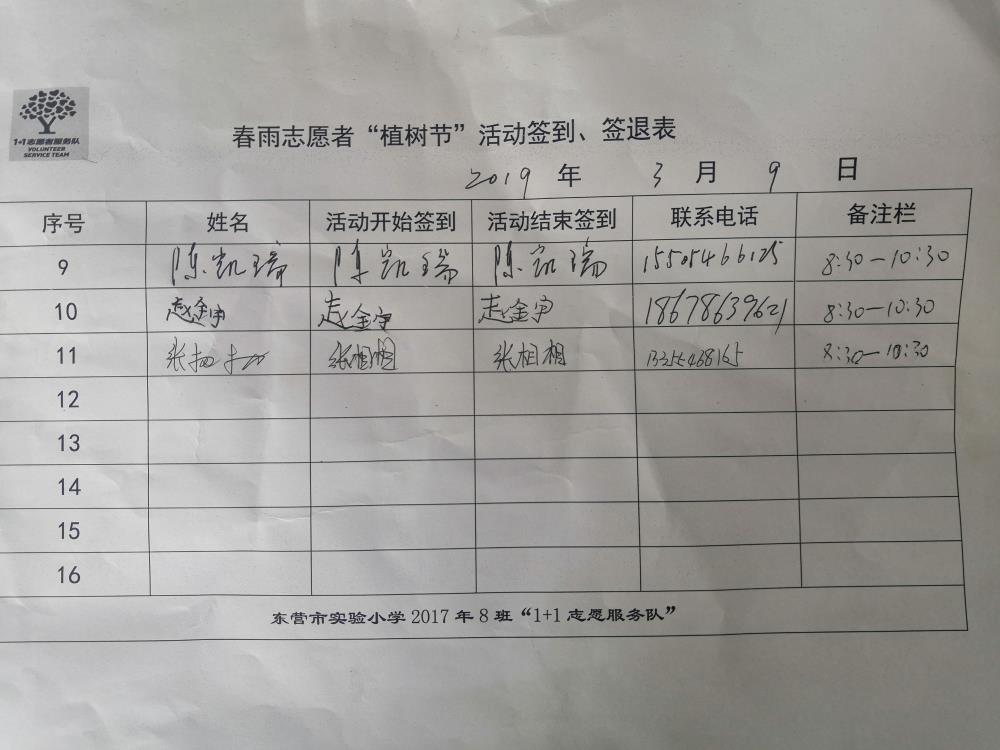 1+1志愿者服务队
VOLUNTEER
SERVICE TEAM
春雨志愿者“植树节”活动签到、签退表
2019 年 3 月 9 日
序号 姓名 活动开始签到 活动结束签到 联系电话 备注栏
9 陈凯瑞 陈凯瑞 陈凯瑞 8:30—10:30
10 赵金宇 赵金宇 赵金宇 18678639621 8:30—10:30
11 张相相 张相相 8:30—10:30
12
13
14
15
16
东营市实验小学 2017 年 8 班“1+1 志愿服务队”